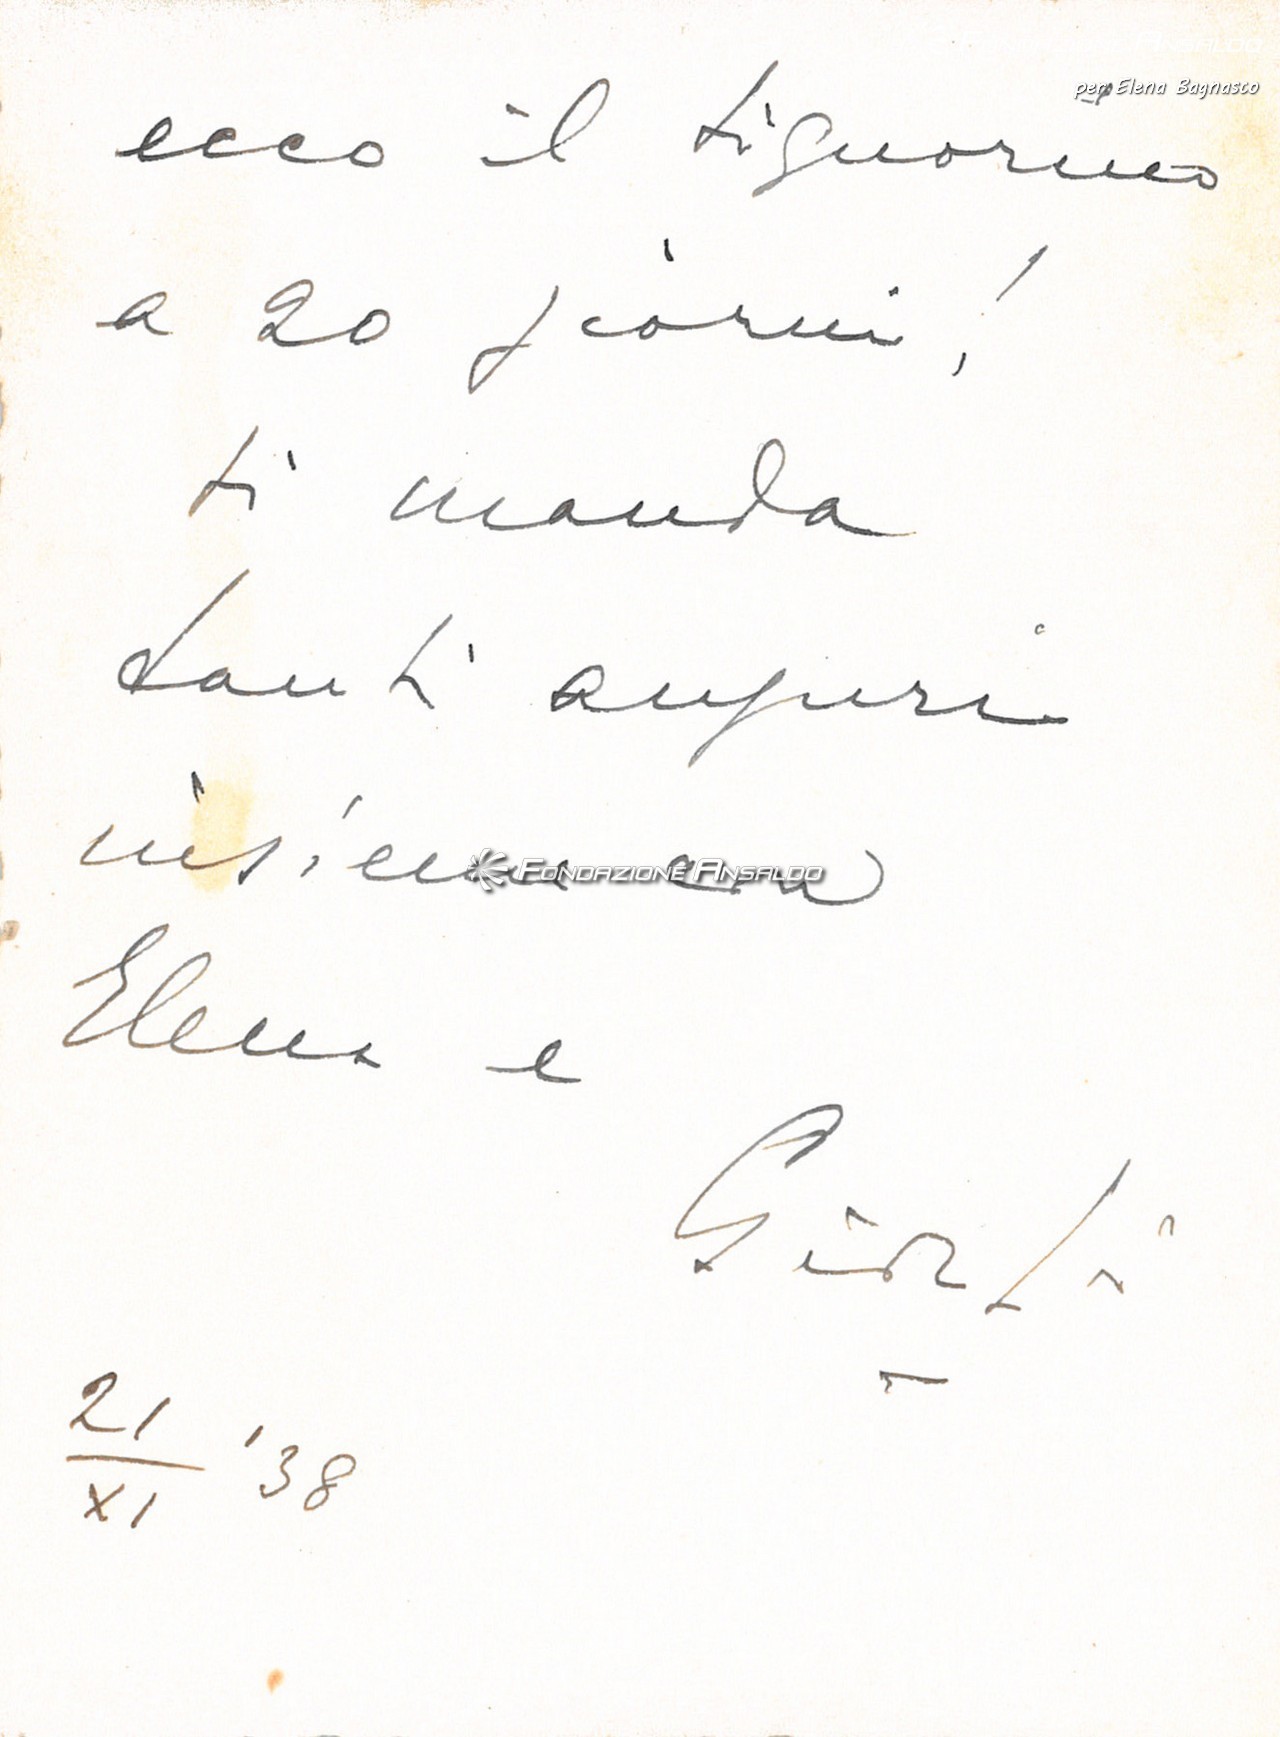 ANSALDO
per Elena Bagnasco
ecco il signorino
a 20 giorni!
ti manda
tanti auguri
insieme con
FONDAZIONE ANSALDO
Elena e
21
XI '38